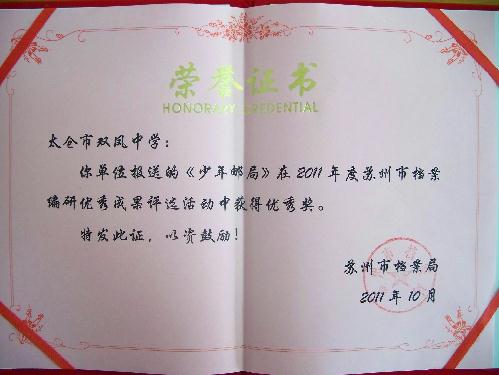 荣誉证书
HONORARY CREDENTIAL
太仓市双凤中学：
你单位报送的《少年邮局》在2011年度苏州市档案
编研优秀成果评选活动中获得优秀奖。
特发此证，以资鼓励！
苏州市档案局
2011年10月